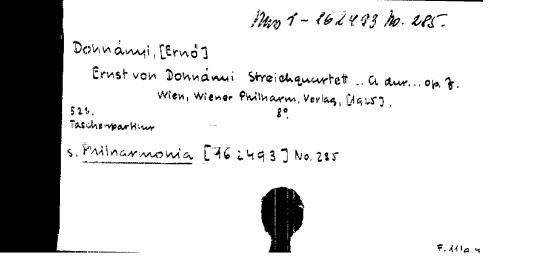 Mus 1 - 162493 No. 285.
Dohnányi, [Ernő]
Ernst von Dohnányi Streichquartett .. A dur... op. 7.
Wien, Wiener Philharm. Verlag, [1925].
52 S. 8°.
Taschenpartitur
s. Philharmonia [162493] No. 285